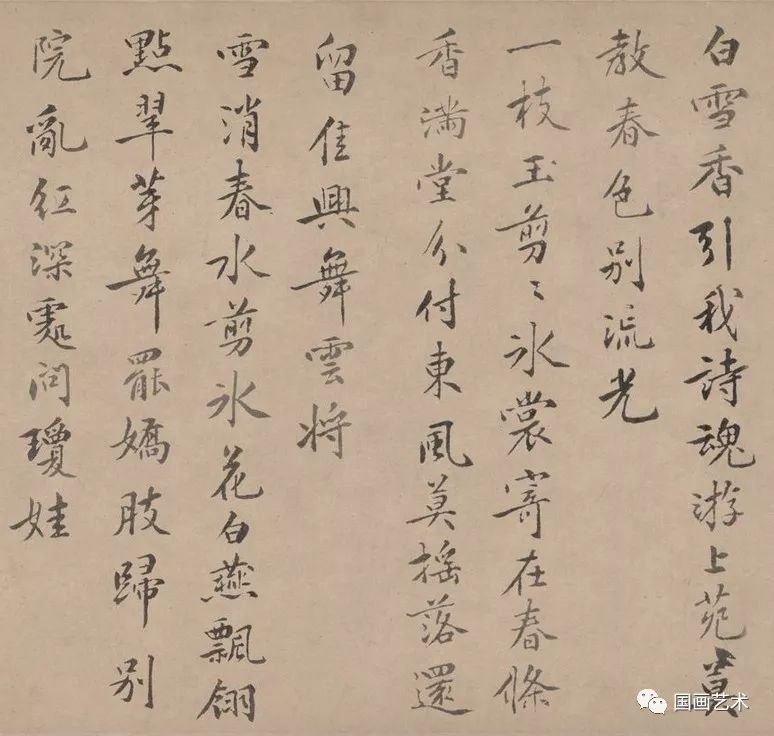 白雪香引我詩魂游上苑莫
教春色別流光
一枝玉剪〻冰裳寄在春條
香滿堂分付東風莫摇落還
留佳興舞雲將
雪消春水剪冰花白燕飄翎
點翠芽舞罷嬌肢歸別
院亂紅深處問瓊娃
国画艺术